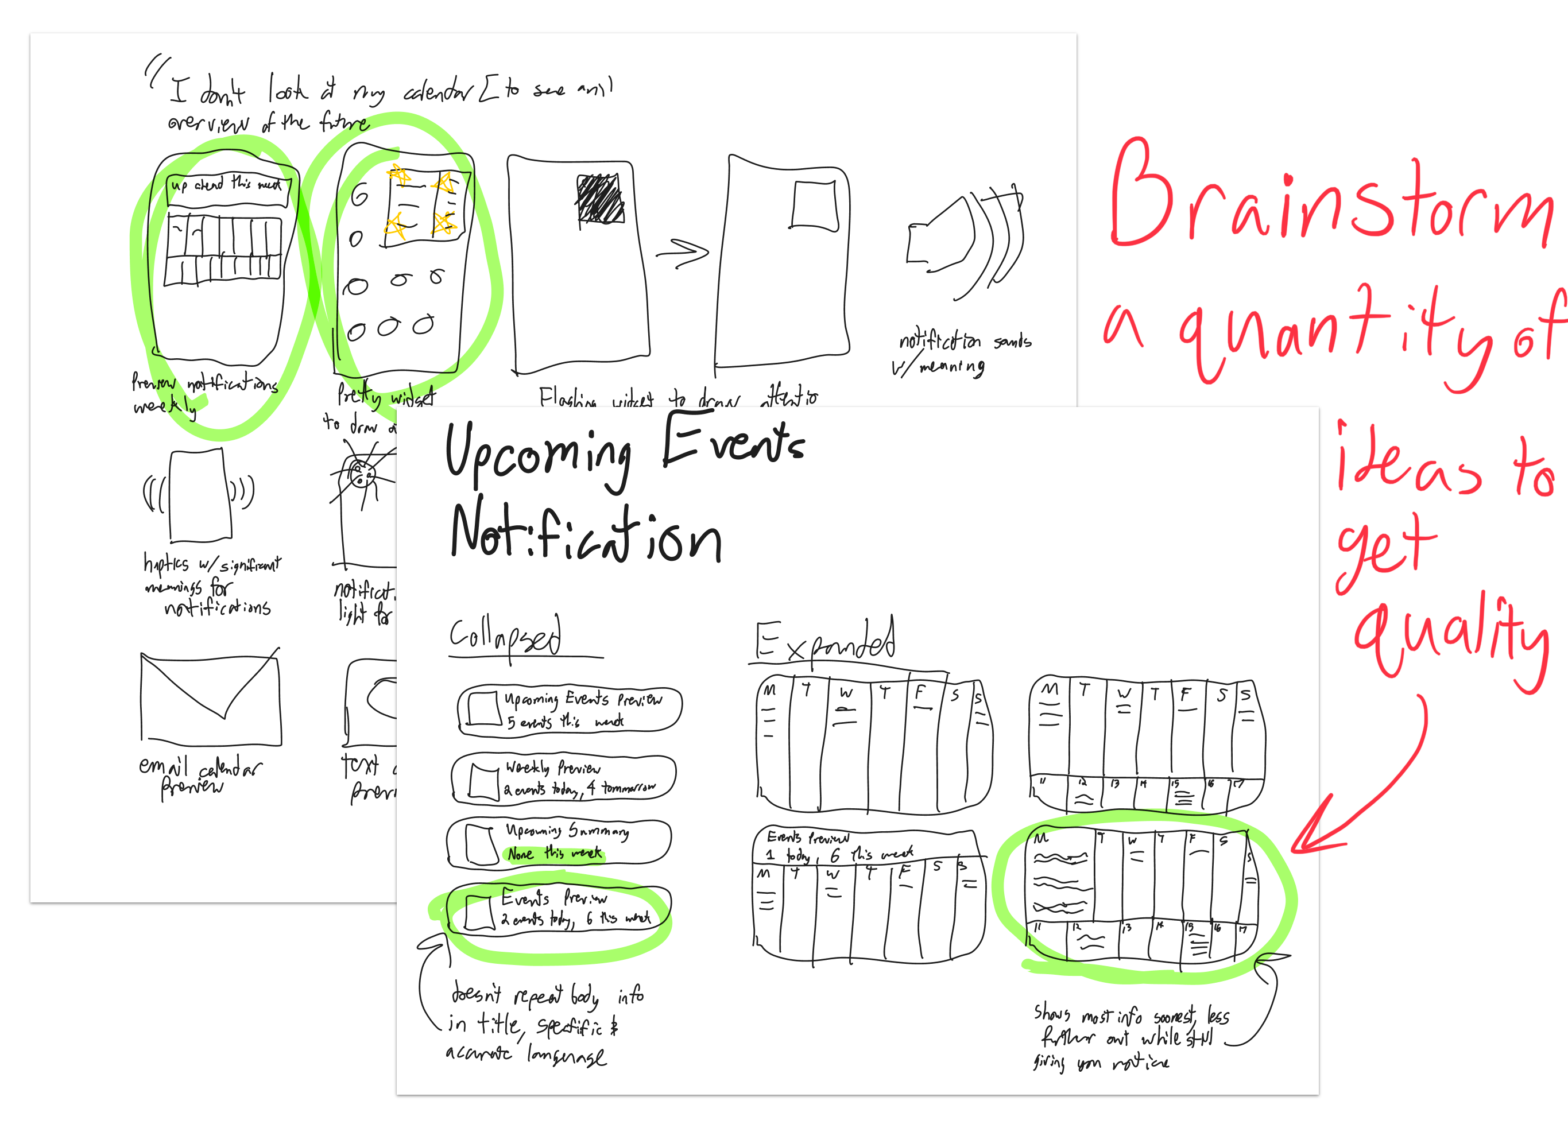 "I don't look at my calendar [to see an]
overview of the future
up ahead this week
Preview notifications
weekly
Pretty widget
to draw a
Flashing widget to draw attentio
notification sounds
w/ meaning
haptics w/ significant
meanings for
notifications
notificati
light for
email calendar
preview
text
previ
Upcoming Events
Notification
Collapsed
Upcoming Events Preview
5 events this week
Weekly Preview
2 events today, 4 tommorrow
Upcoming Summary
None this week
Events Preview
2 events today, 6 this week
doesn't repeat body info
in title, specific &
accurate language
Expanded
M T W T F S S
M T W T F S S
11 12 13 14 15 16 17
Events Preview
1 today, 6 this week
M T W T F S S
M T W T F S S
11 12 13 14 15 16 17
shows most info soonest, less
further out while still
giving you notice
Brainstorm
a quantity of
ideas to
get
quality